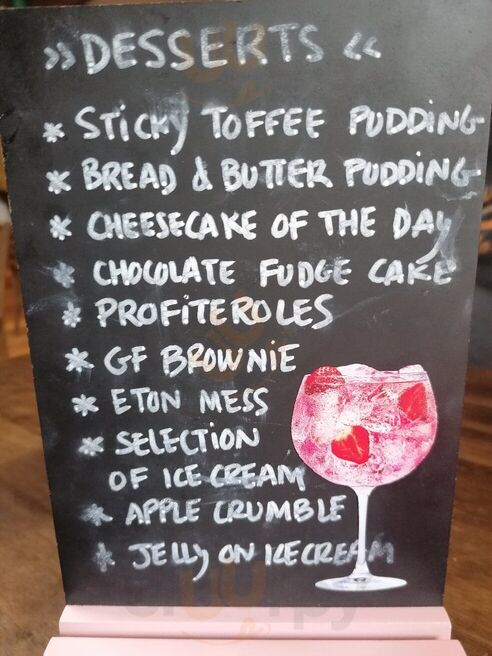 » DESSERTS «
* STICKY TOFFEE PUDDING
* BREAD & BUTTER PUDDING
* CHEESECAKE OF THE DAY
* CHOCOLATE FUDGE CAKE
* PROFITEROLES
* GF BROWNIE
* ETON MESS
* SELECTION
OF ICE CREAM
* APPLE CRUMBLE
* JELLY ON ICECREAM